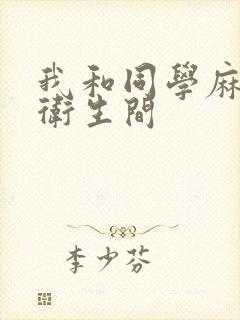 我和同學麻
衛生間
李少芬